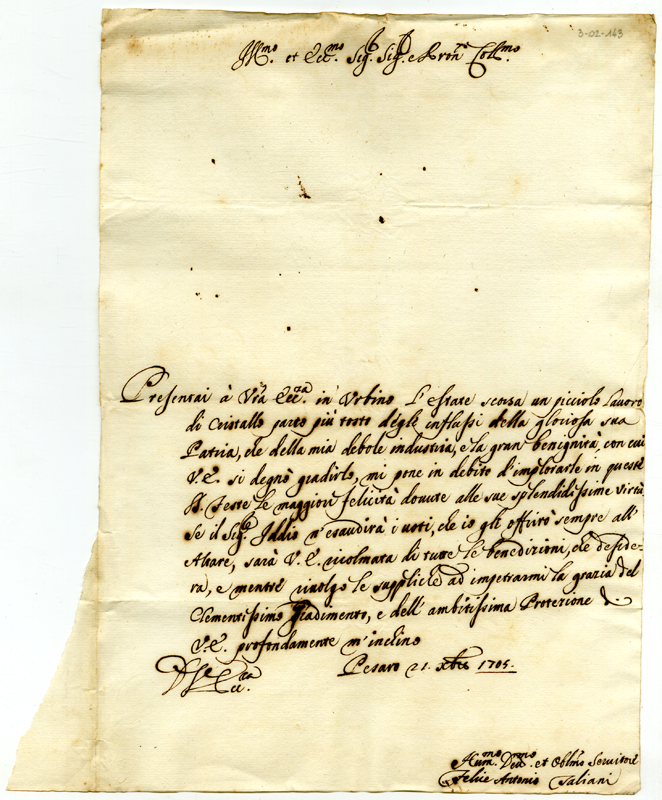 3-02-143
Ill.mo et Ecc.mo Sig.r Sig.r e Pron. Coll.mo
Presentai à V.ra Ecc.za in Urbino l'estate scorsa un picciolo lavoro
di Cristallo parto più tosto degl'influssi della gloriosa sua
Patria, che della mia debole industria, e la gran benignità, con cui
V.E. si degnò gradirlo, mi pone in debito d'implorarle in queste
S. Feste le maggiori felicità dovute alle sue splendidissime virtù.
Se il Sig.r Iddio m'esaudirà i voti, che io gli offrirò sempre all'
Altare, sarà V.E. ricolmata di tutte le benedizioni, che deside-
ra, e mentre rivolgo le suppliche ad impetrarmi la grazia del
Clementissimo gradimento, e dell'ambitissima Protezione di
V.E. profondamente m'inclino
Pesaro 21. Xbre 1705.
Hum.mo Dev.mo et Obl.mo Servitore
Felice Antonio Taliani